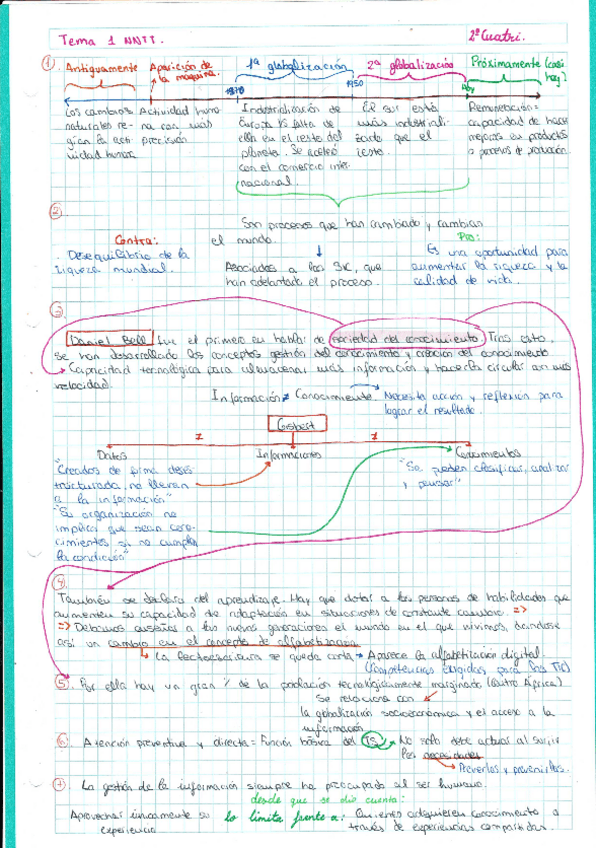 Tema 1 NNTT.
2º Cuatri.
① Antiguamente
Aparición de la maquina.
1ª globalización
2ª globalización
Próximamente (casi hoy)
1950
Hoy
Los cambios naturales regían la act. humana
Actividad humana con más precisión
Industrialización de Europa vs falta de ella en el resto del planeta. Se aceleró con el comercio internacional.
El sur está más industrializado que el resto.
capacidad de hacer mejoras en productos o procesos de producción.
②
Son procesos que han cambiado y cambian el mundo.
Contra:
Desequilibrio de la riqueza mundial.
Asociados a los que han adelantado el proceso.
Pro:
Es una oportunidad para aumentar la riqueza y la calidad de vida.
③
Daniel Bell fue el primero en hablar de sociedad del conocimiento. Tras esto,
se han desarrollado los conceptos gestión del conocimiento y creación del conocimiento
→ Capacidad tecnológica para almacenar más información y hacerla circular con más
velocidad.
Información ≠ Conocimiento. Necesita acción y reflexión para
lograr el resultado.
Gisbert
≠ ≠
Datos
Informaciones
Conocimientos
"Creados de forma desestructurada, no llevan
a la información"
"Su organización no
implica que sean conocimientos si no cumplen
la condición"
"Se pueden clasificar, analizar
y pensar"
④
También se declara del aprendizaje. Hay que dotar a las personas de habilidades que
aumenten su capacidad de adaptación en situaciones de constante cambio. =>
=> Debemos enseñar a las nuevas generaciones el mundo en el que vivimos, dándose
así un cambio en el concepto de alfabetización
↳ La lectoescritura se queda corta → Aparece la alfabetización digital.
(Competencias exigidas para las TIC)
⑤. Por ella hay un gran % de la población tecnológicamente marginada
Se relaciona con
la globalización socioeconómica y el acceso a la
información
⑥. Atención preventiva y directa = Función básica del TS → No solo debe actuar al surgir
las necesidades
Preverlos y prevenirlos.
⑦. La gestión de la información siempre ha preocupado al ser humano.
desde que se dio cuenta:
Aprovechar únicamente su experiencia
lo limita frente a:
Quienes adquieren conocimiento a
través de experiencias compartidas.